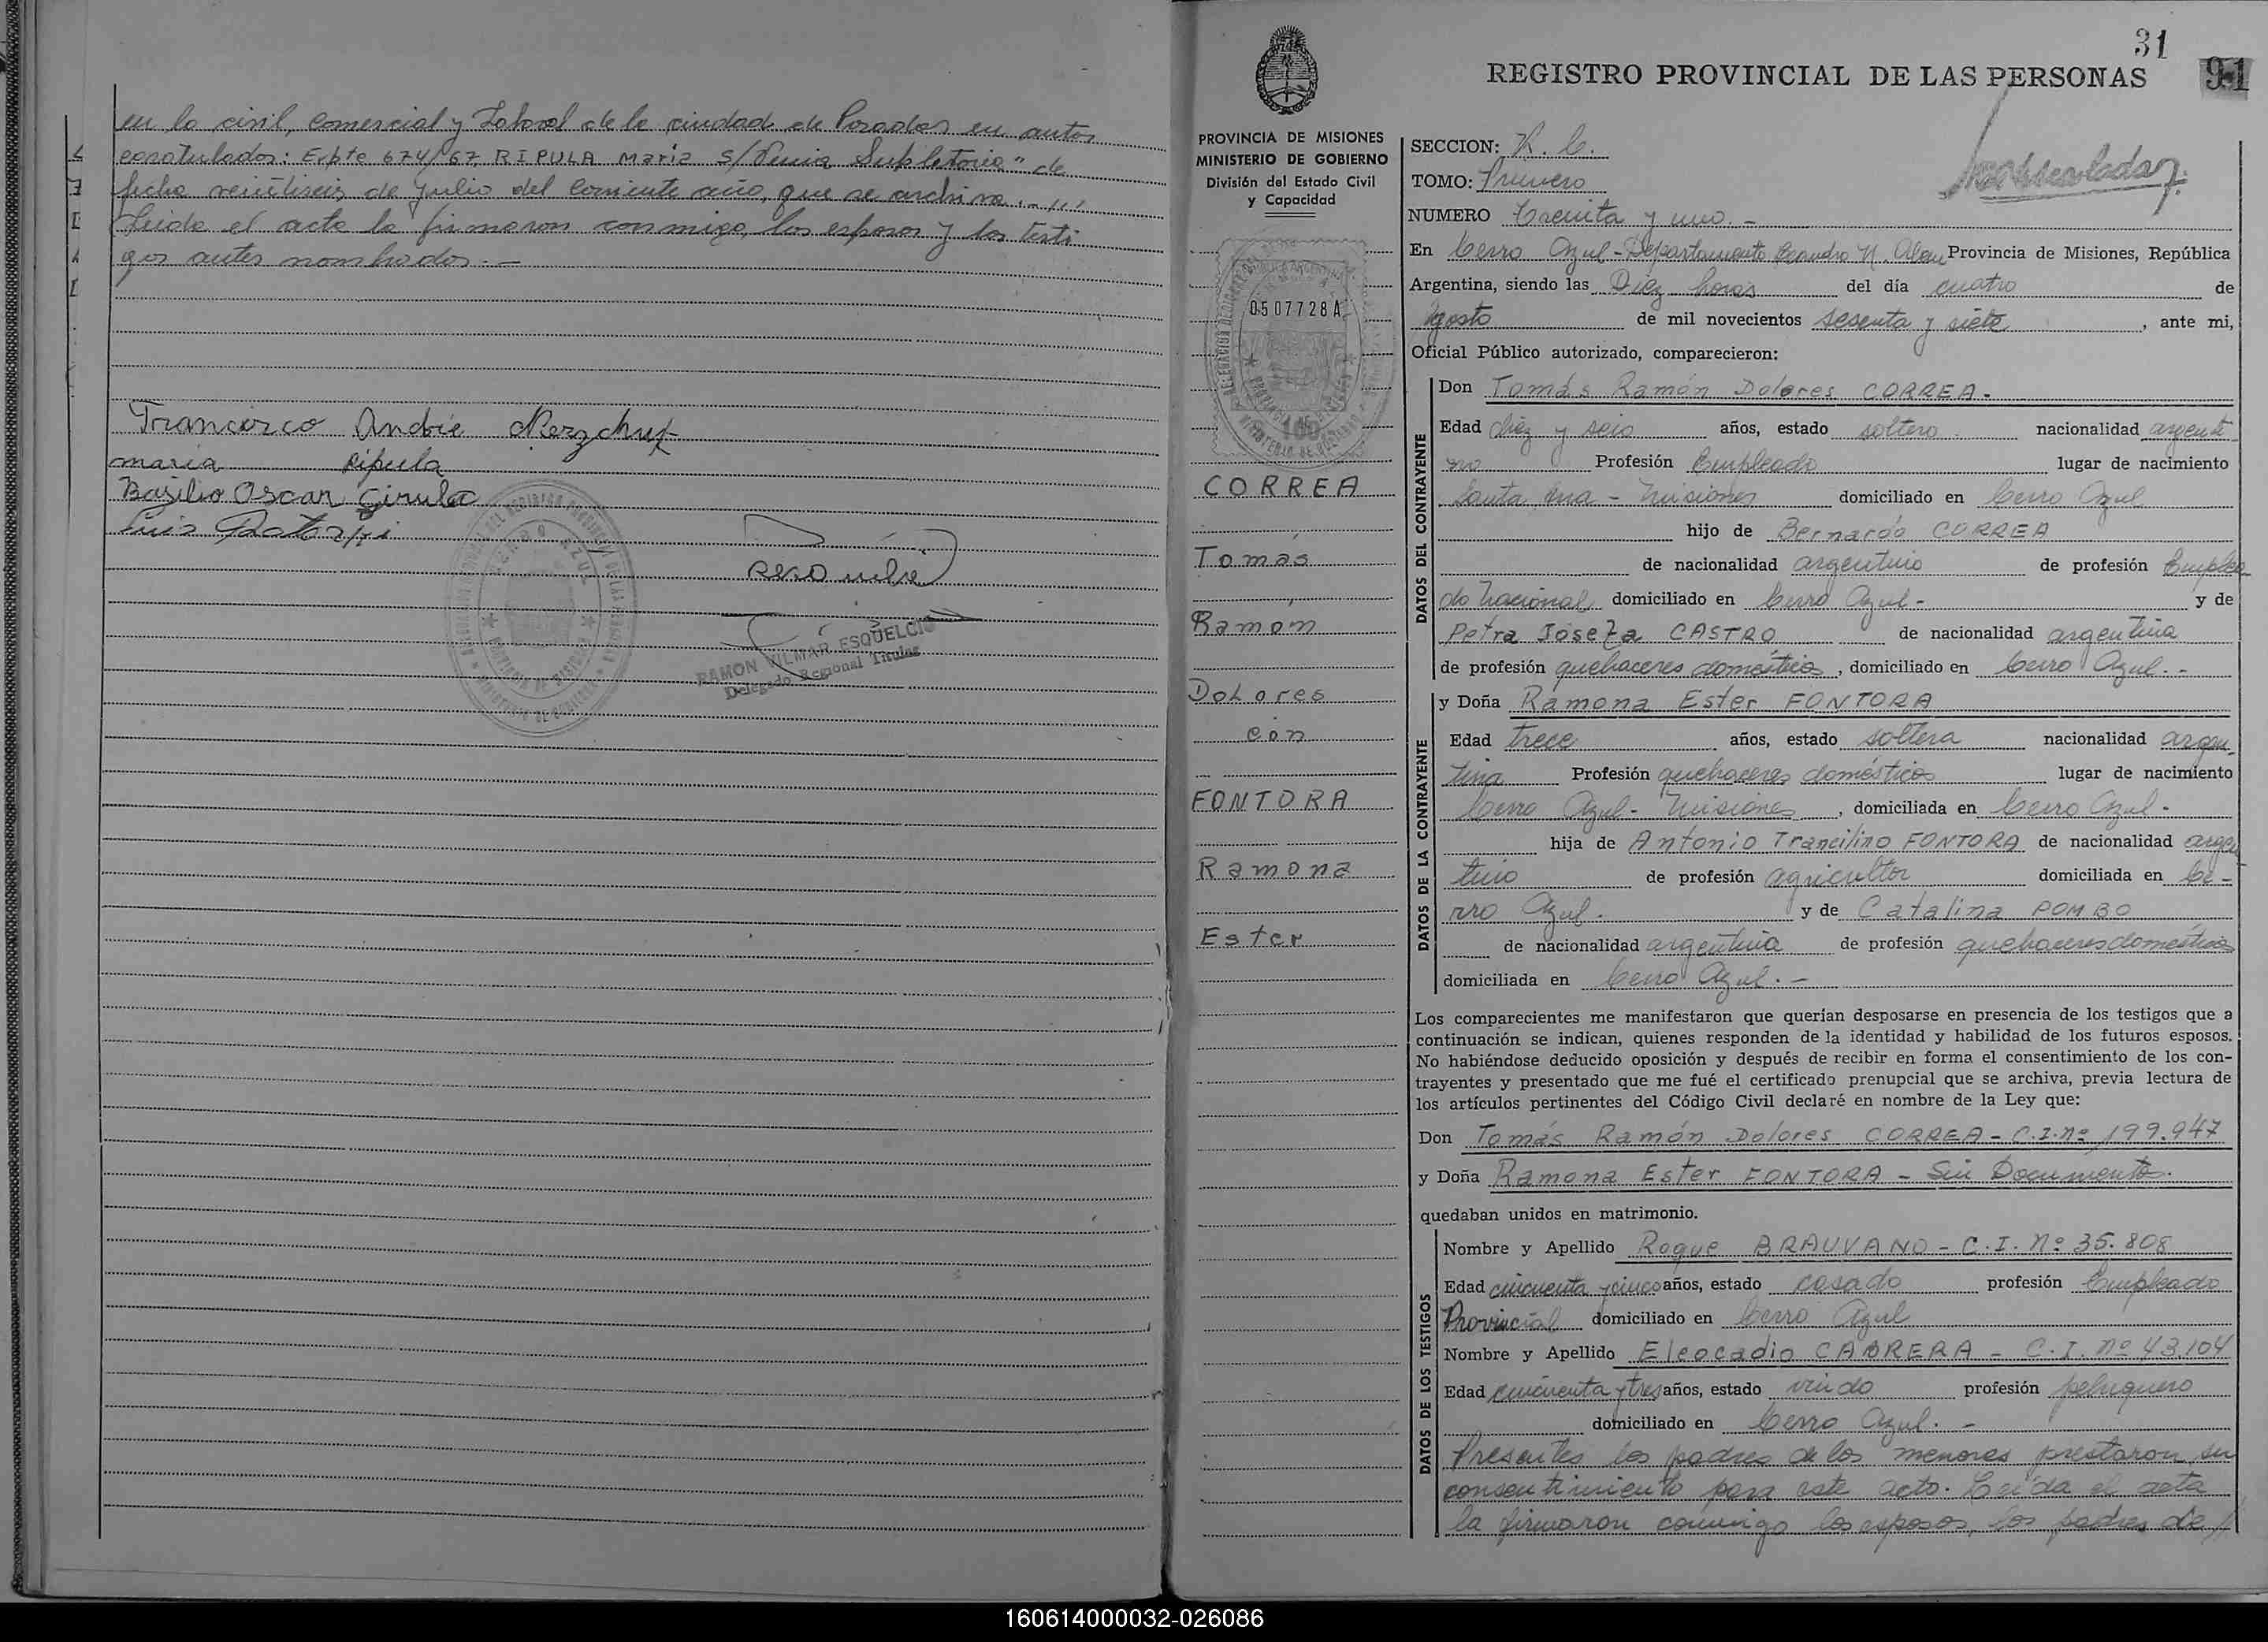 en lo civil, Comercial y Laboral de la ciudad de Posadas en autos
caratulados: Expte 674/67 RIPULA Maria s/Venia Supletoria" de
fecha veintiseis de Julio del corriente año, que se archiva.-
Leida el acta la firmaron conmigo, los esposos y los testi
gos antes nombrados.-
Francisco Andrés
maria Ripula
Basilio Oscar
Luis
RAMON VILMAR ESQUELCIO
Delegado Regional Titular
31
91
REGISTRO PROVINCIAL DE LAS PERSONAS
PROVINCIA DE MISIONES
MINISTERIO DE GOBIERNO
División del Estado Civil
y Capacidad
0507728A
CORREA
Tomás
Ramón
Dolores
con
FONTORA
Ramona
Ester
SECCION: K. C.
TOMO: Primero
NUMERO Treinta y uno.-
En Cerro Azul - Departamento Leandro N. Alem Provincia de Misiones, República
Argentina, siendo las Diez horas del día cuatro de
Agosto de mil novecientos sesenta y siete, ante mi,
Oficial Público autorizado, comparecieron:
DATOS DEL CONTRAYENTE
Don Tomás Ramón Dolores CORREA.
Edad diez y seis años, estado soltero nacionalidad argenti
no Profesión Empleado lugar de nacimiento
Santa Ana - Misiones domiciliado en Cerro Azul
hijo de Bernardo CORREA
de nacionalidad argentino de profesión Emplea
do Nacional domiciliado en Cerro Azul- y de
Petra Josefa CASTRO de nacionalidad argentina
de profesión quehaceres domésticos, domiciliado en Cerro Azul.-
DATOS DE LA CONTRAYENTE
y Doña Ramona Ester FONTORA
Edad trece años, estado soltera nacionalidad argen-
tina Profesión quehaceres domésticos lugar de nacimiento
Cerro Azul - Misiones, domiciliada en Cerro Azul.
hija de Antonio Trancilino FONTORA de nacionalidad argen
tino de profesión agricultor domiciliada en Ce-
rro Azul. y de Catalina POMBO
de nacionalidad argentina de profesión quehaceres domésticos
domiciliada en Cerro Azul.-
Los comparecientes me manifestaron que querían desposarse en presencia de los testigos que a
continuación se indican, quienes responden de la identidad y habilidad de los futuros esposos.
No habiéndose deducido oposición y después de recibir en forma el consentimiento de los con-
trayentes y presentado que me fué el certificado prenupcial que se archiva, previa lectura de
los artículos pertinentes del Código Civil declaré en nombre de la Ley que:
Don Tomás Ramón Dolores CORREA - C.I. nº 199.947
y Doña Ramona Ester FONTORA - Sin Documento.
quedaban unidos en matrimonio.
DATOS DE LOS TESTIGOS
Nombre y Apellido Roque BRAUVANO - C.I. Nº 35.808
Edad cincuenta y cinco años, estado casado profesión Empleado
Provincial domiciliado en Cerro Azul
Nombre y Apellido Eleocadio CABRERA - C.I. nº 43.104
Edad cincuenta y tres años, estado viudo profesión peluquero
domiciliado en Cerro Azul.-
Presentes los padres de los menores prestaron su
consentimiento para este acto. Leída el acta
la firmaron conmigo los esposos, los padres de
160614000032-026086